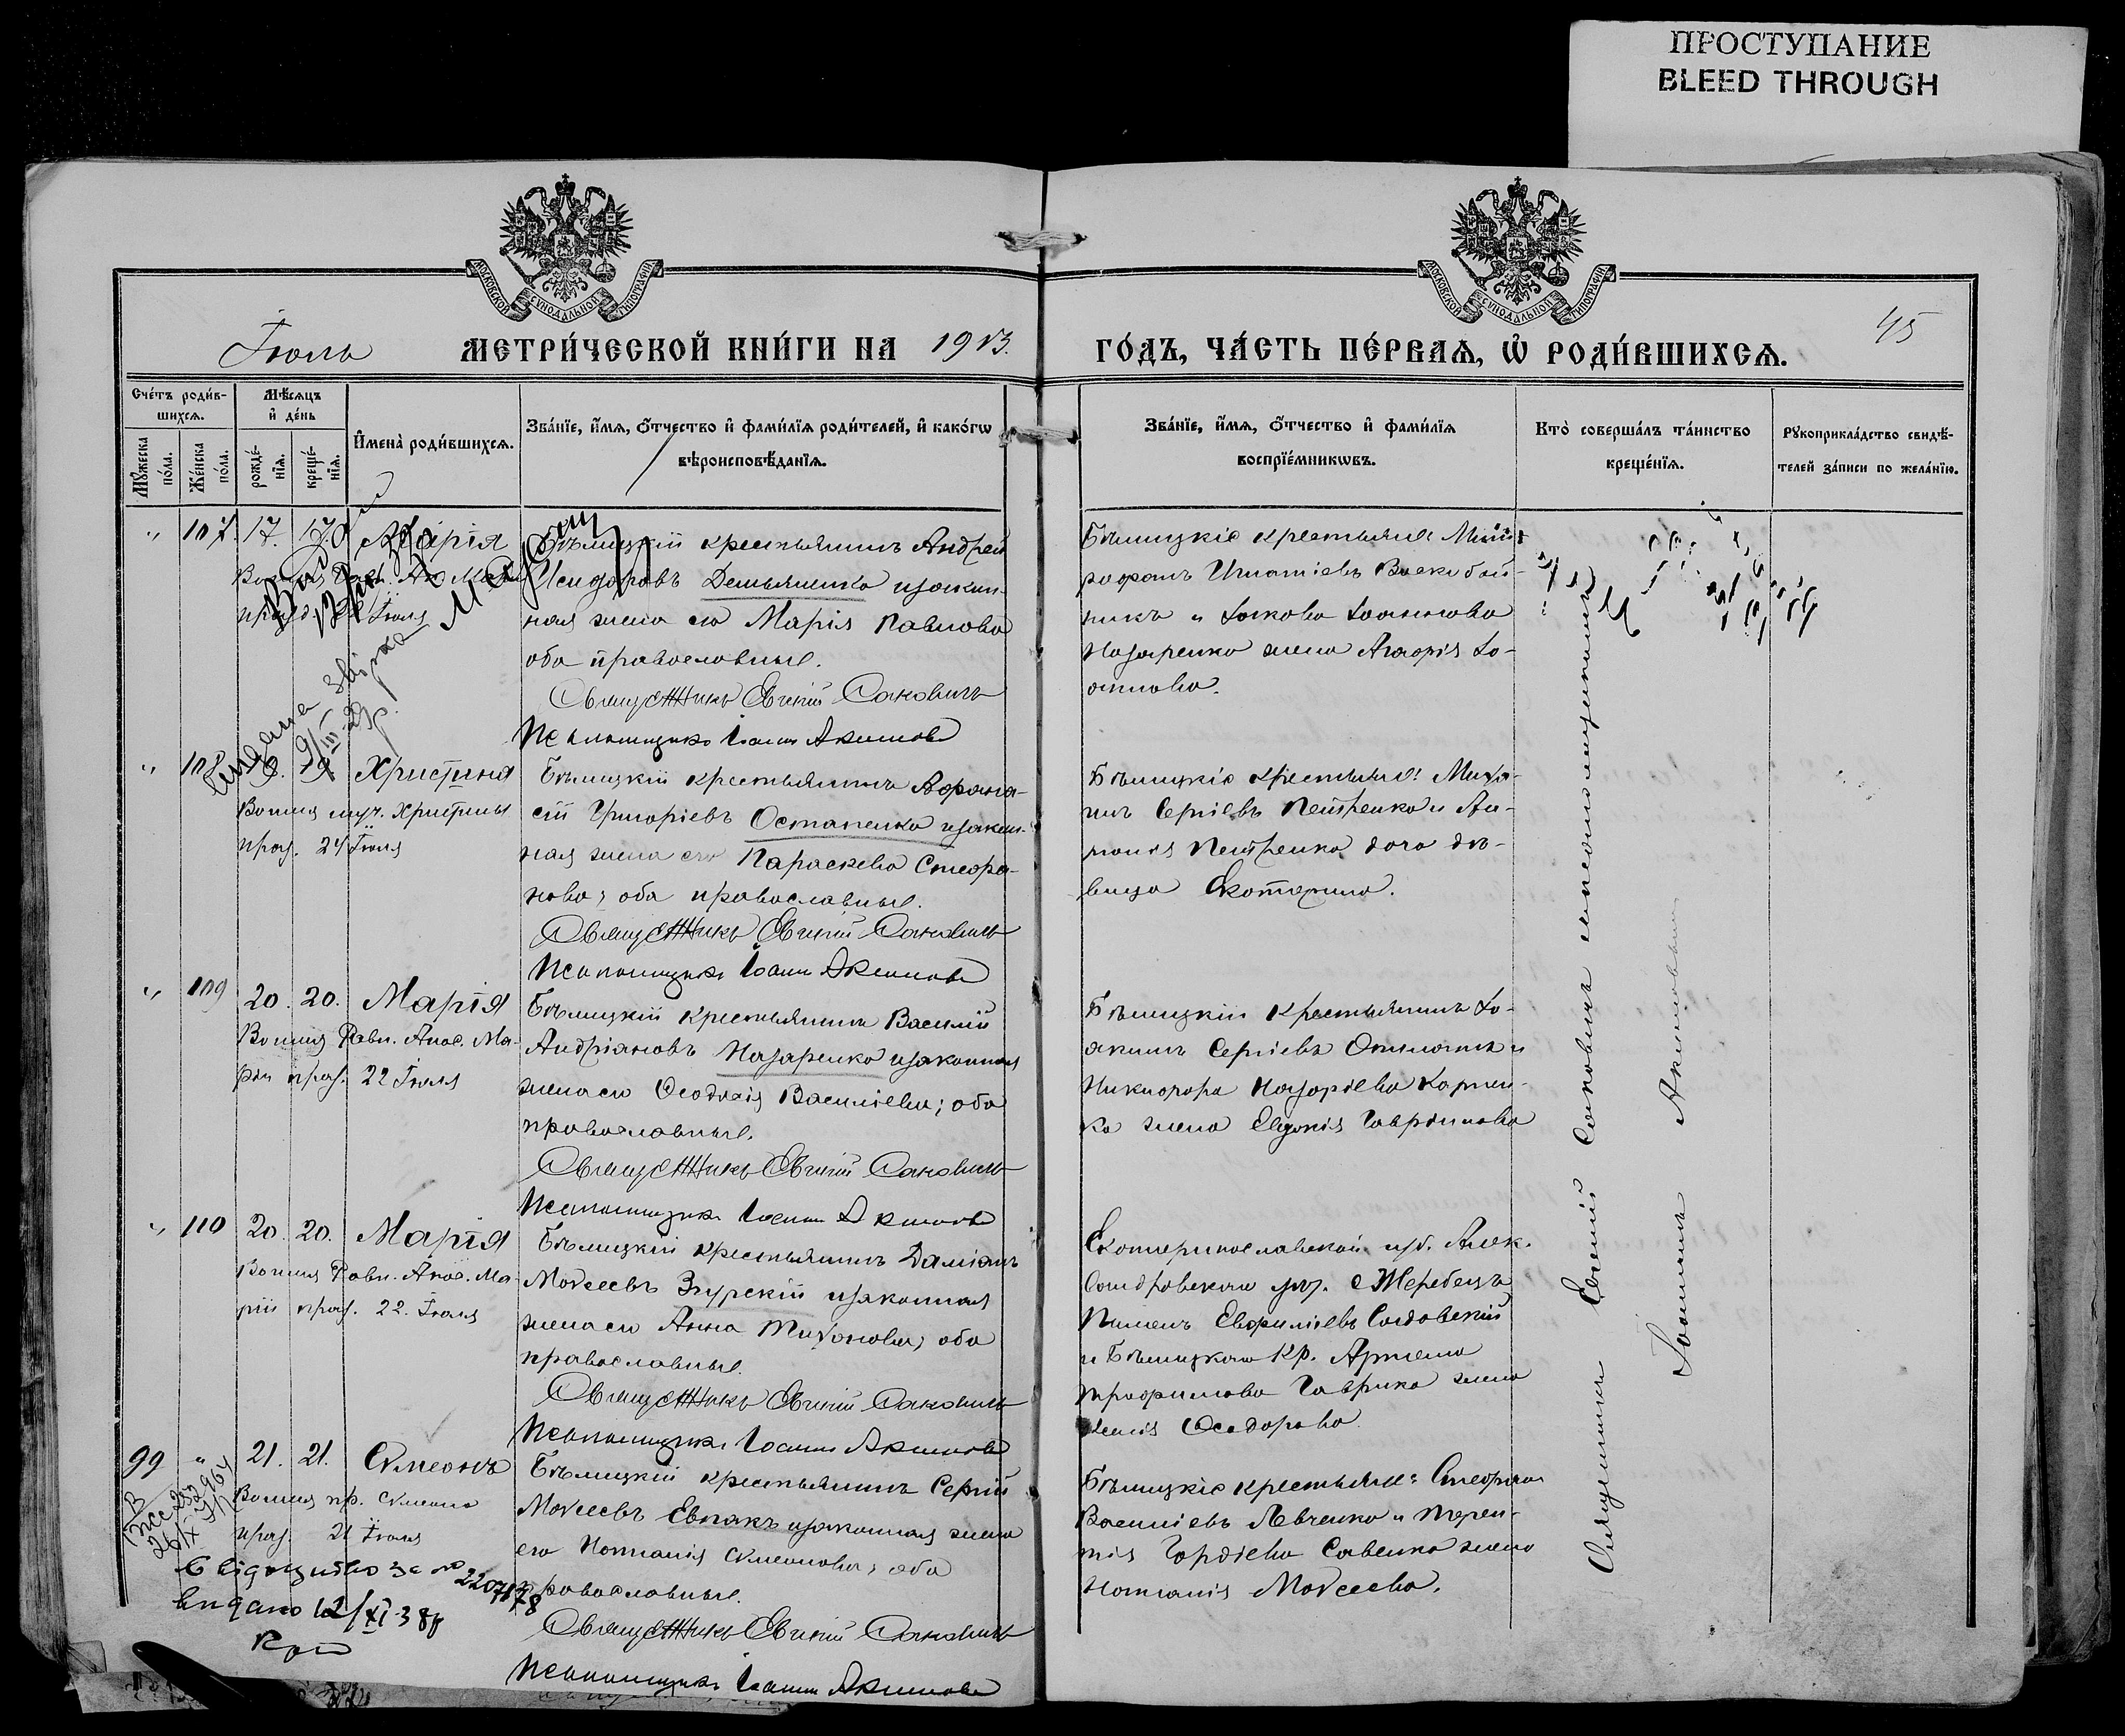 ПРОСТУПАНИЕ
BLEED THROUGH
МОСКОВСКОЙ СѴНОДАЛЬНОЙ ТИПОГРАФІИ
МОСКОВСКОЙ СѴНОДАЛЬНОЙ ТИПОГРАФІИ
Іюль МЕТРИ́ЧЕСКОЙ КНИ́ГИ НА 1913.
ГО́ДЪ, ЧА́СТЬ ПЕ́РВАѦ, Ѡ҆ РОДИ́ВШИХСѦ.
45
Сче́тъ роди́в-
шихсѧ.
Мꙋ́жеска по́ла.
Же́нска по́ла.
Мѣ́сѧцъ
и҆ де́нь
рожде́-
нїѧ.
креще́-
нїѧ.
И҆мена̀ роди́вшихсѧ.
Зва́нїе, и҆́мѧ, ѻ҆́тчество и҆ фамѝлїѧ роди́телей, и҆ како́гѡ
вѣроисповѣ́данїѧ.
Зва́нїе, и҆́мѧ, ѻ҆́тчество и҆ фамѝлїѧ
воспрїе́мникѡвъ.
Кто̀ соверша́лъ та́инство
креще́нїѧ.
Рꙋкоприкла́дство свидѣ́-
телей за́писи по жела́нїю.
" 107. 17. 17. Марія
Іюля
Бѣлицкій крестьянинъ Андрей
Исидоровъ Демьяненко и закон-
ная жена его Марія Павлова
оба православные.
Священникъ Евгеній Саковичъ
Псаломщикъ Іоаннъ Акимовъ
Бѣлицкіе крестьяне: Митро-
фанъ Игнатіевъ
и Іакова Іоаннова
Назаренко жена Агафія
" 108 Христина
Во имя муч. Христины
празд. 24 Іюля
Бѣлицкій крестьянинъ Афана-
сій Григоріевъ Остапенко и закон-
ная жена его Параскева Стефа-
нова, оба православные.
Священникъ Евгеній Саковичъ
Псаломщикъ Іоаннъ Акимовъ
Бѣлицкіе крестьяне: Миха-
илъ Сергіевъ Петренко и Ан-
тонія Петренко дочь дѣ-
вица Екатерина.
" 109 20. 20. Марія
Во имя Равн. Апос. Ма-
ріи празд. 22 Іюля
Бѣлицкій крестьянинъ Василій
Андріановъ Назаренко и законная
жена его Ѳеодосія Василіева; оба
православные.
Священникъ Евгеній Саковичъ
Псаломщикъ Іоаннъ Акимовъ
Бѣлицкій крестьянинъ Іо-
акимъ Сергіевъ и
Никифора Назаріева Карпен-
ко жена Евдокія Гавріилова
" 110 20. 20. Марія
Во имя Равн. Апос. Ма-
ріи празд. 22. Іюля
Бѣлицкій крестьянинъ Даміанъ
Моисеевъ Згурскій и законная
жена его Анна Тихонова; оба
православные.
Священникъ Евгеній Саковичъ
Псаломщикъ Іоаннъ Акимовъ
Екатеринославской губ. Алек-
сандровскаго уѣз. с. Жеребецъ
Пименъ
и Бѣлицкаго кр. Артема
Трофимова Гаврика жена
Ксенія Ѳеодорова
99 " 21. 21. Симеонъ
Во имя пр. Симеона
празд. 21 Іюля
Бѣлицкій крестьянинъ Сергій
Моисеевъ Евпакъ и законная жена
его Наталія Симеонова; оба
православные.
Священникъ Евгеній Саковичъ
Псаломщикъ Іоаннъ Акимовъ
Бѣлицкіе крестьяне: Стефанъ
Василіевъ Левченко и Терен-
тія Гордіева Савенко жена
Наталія Моисеева.
Свідоцтво за №
Видано 12/XI-38р
Священникъ Евгеній Саковичъ и псаломщикъ
Іоаннъ Акимовъ